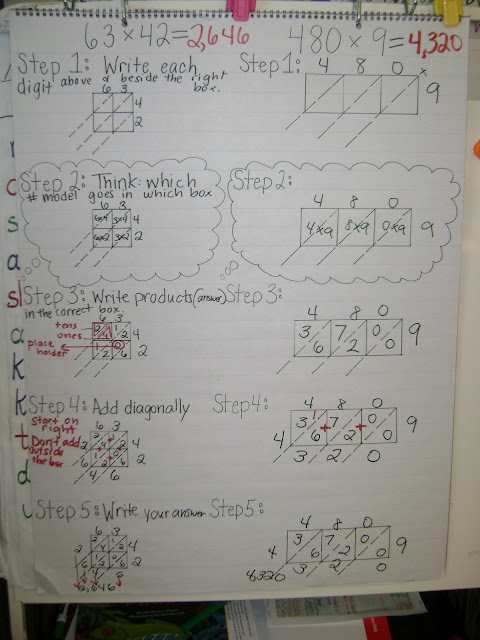 63×42=2,646 480×9=4,320
Step 1: Write each
digit above & beside the right
box.
6 3
4
2
Step 1:
4 8 0 ×
9
Step 2: Think: which
# model goes in which box
6 3
6×4 3×4 4
6×2 3×2 2
Step 2:
4 8 0
4×9 8×9 0×9 9
Step 3: Write products (answer)
in the correct box.
6 3
tens
ones
2 4 1 2 4
place
holder
1 2 0 6 2
Step 3:
4 8 0
3 6 7 2 0 0 9
Step 4: Add diagonally
Start on
right
Don't add
outside
the box
6 3
2 4
6 2
4 6
Step 4:
4 8 0
1
3 6 + 7 2 + 0 0 9
4
3 2 0
Step 5: Write your answer
6 3
2 4
6 2
4 6
2,646
Step 5:
4 8 0
3 6 7 2 0 0 9
4
3 2 0
4320
r
c
s
a
sl
a
k
k
t
d